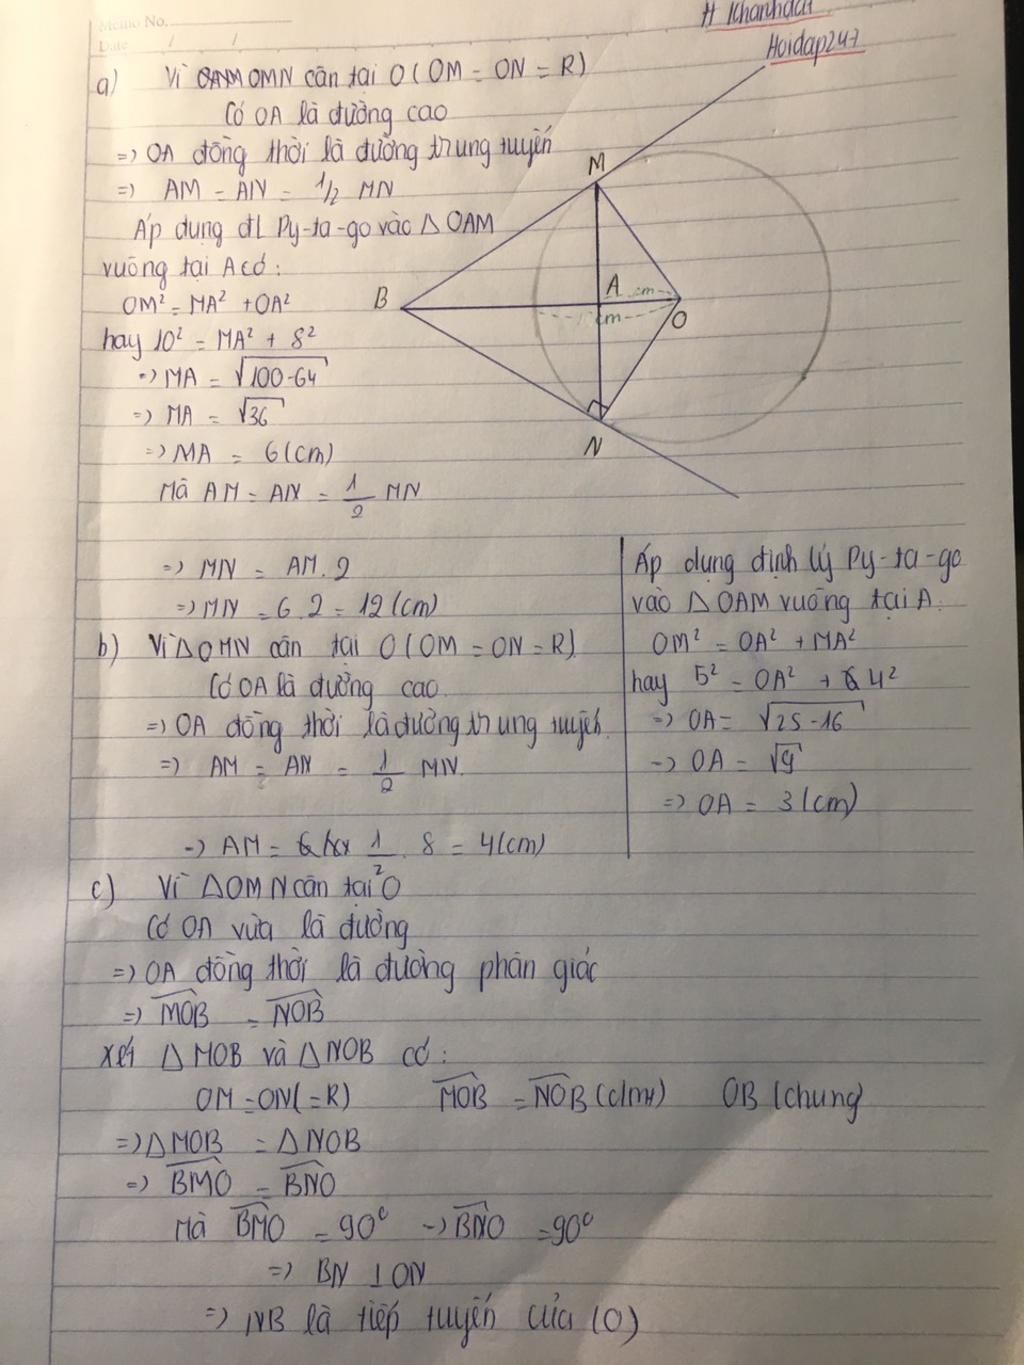 Memo No.
Date / /
H Khanhdat
Hoidap247
a) Vì OMN cân tại O (OM = ON = R)
Có OA là đường cao
=> OA đồng thời là đường trung tuyến
=> AM = AN = 1/2 MN
Áp dụng đL Py-ta-go vào △ OAM
vuông tại A có:
OM² = MA² + OA²
hay 10² = MA² + 8²
=> MA = √100-64
=> MA = √36
=> MA = 6 (cm)
Mà AM = AN = 1/2 MN
=> MN = AM. 2
=> MN = 6. 2 = 12 (cm)
M
B
A
cm
cm
O
N
b) Vì △OMN cân tại O (OM = ON = R)
Có OA là đường cao.
=> OA đồng thời là đường trung tuyến
=> AM = AN = 1/2 MN.
=> AM = 1/2 . 8 = 4 (cm)
Áp dụng định lý Py-ta-go
vào △ OAM vuông tại A:
OM² = OA² + MA²
hay 5² = OA² + 4²
=> OA = √25-16
=> OA = √9
=> OA = 3 (cm)
c) Vì △OMN cân tại O
Có OA vừa là đường
=> OA đồng thời là đường phân giác
=> MOB = NOB
Xét △ MOB và △ NOB có:
OM = ON (=R) MOB = NOB (cmt) OB (chung)
=> △ MOB = △ NOB
=> BMO = BNO
Mà BMO = 90° => BNO = 90°
=> BN ⊥ ON
=> NB là tiếp tuyến của (O)